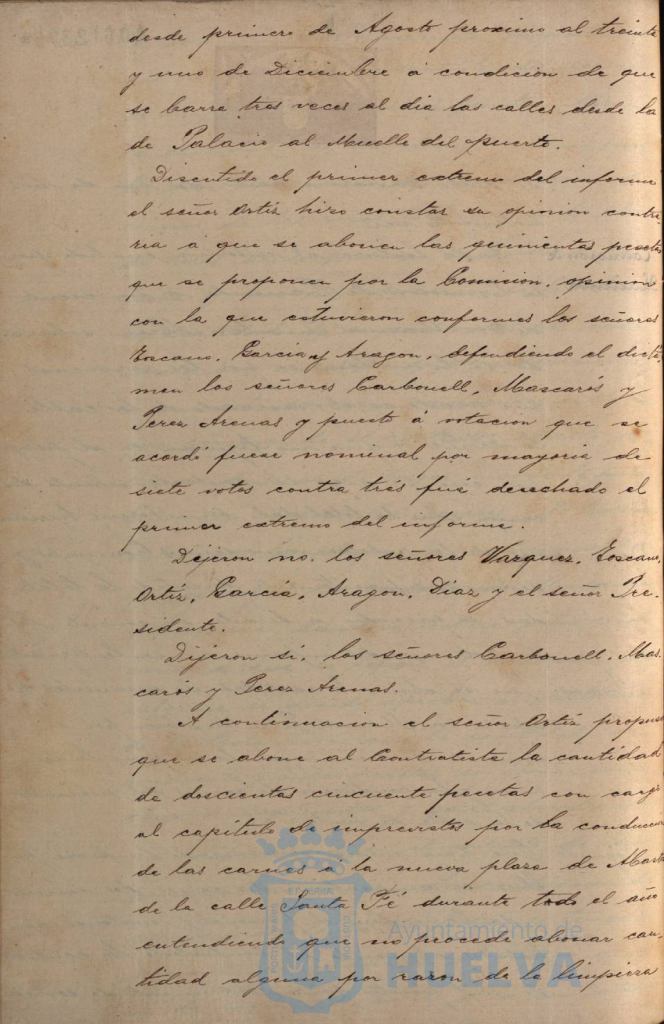 desde primero de Agosto proximo al treinta
y uno de Diciembre á condicion de que
se barra tres veces al dia las calles desde la
de Palacio al Muelle del puerto.
Discutido el primer extremo del informe
el señor Ortiz hizo constar su opinion contra
ria á que se abonen las quinientas pesetas
que se proponen por la Comision, opinion
con la que estuvieron conformes los señores
Toscano, García y Aragon, defendiendo el dictá
men los señores Carbonell, Mascarós y
Perez Arenas y puesto á votacion que se
acordó fuese nominal por mayoria de
siete votos contra trés fué desechado el
primer extremo del informe.
Dijeron no, los señores Vazquez, Toscano,
Ortiz, García, Aragon, Diaz y el señor Pre-
sidente.
Dijeron si, los señores Carbonell, Mas
carós y Perez Arenas.
A continuacion el señor Ortiz propuso
que se abone al Contratista la cantidad
de doscientas cincuenta pesetas con cargo
al capítulo de imprevistos por la conduccion
de las carnes á la nueva plaza de Abastos
de la calle Santa Fé durante todo el año
entendiendo que no procede abonar can-
tidad alguna por razon de la limpieza
Ayuntamiento de
HUELVA